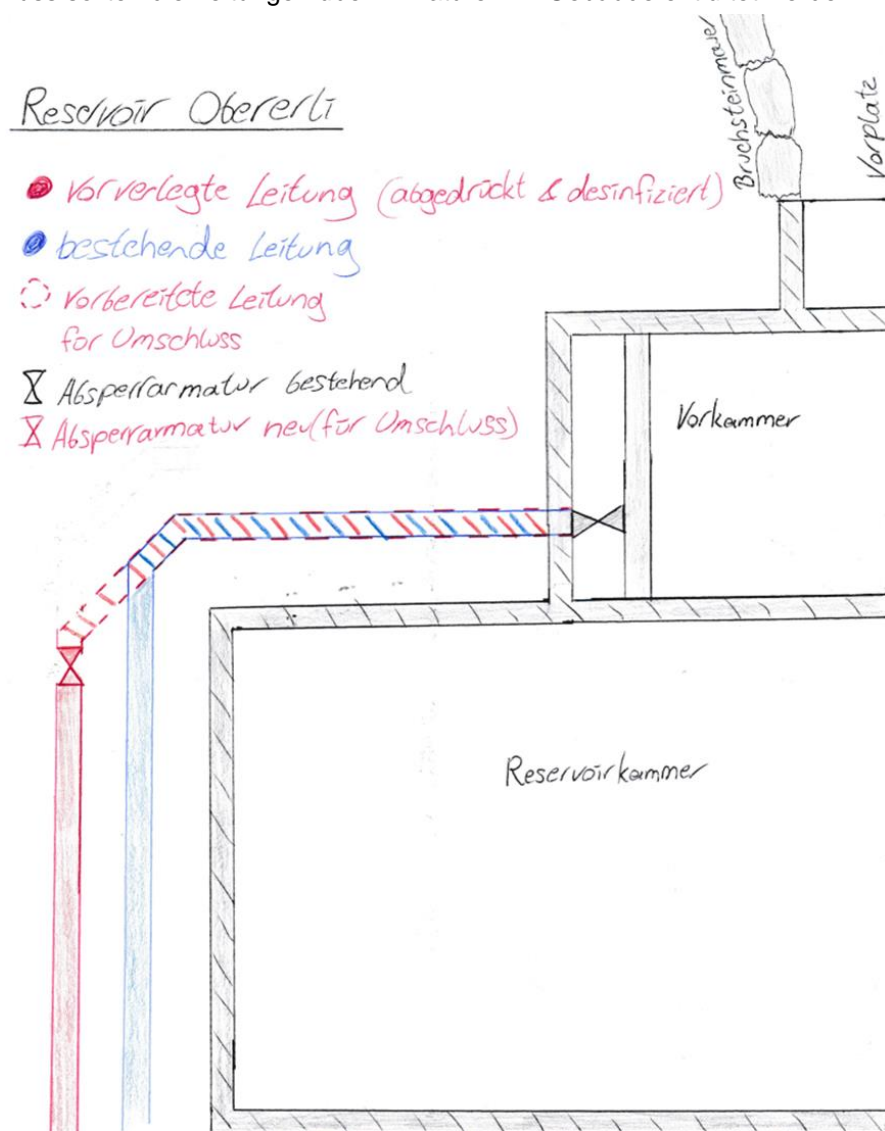 Reservoir Obererli
Vorverlegte Leitung (abgedrückt & desinfiziert)
bestehende Leitung
Vorbereitete Leitung
für Umschluss
Absperrarmatur bestehend
Absperrarmatur neu (für Umschluss)
Bruchsteinmauer
Vorplatz
Vorkammer
Reservoirkammer